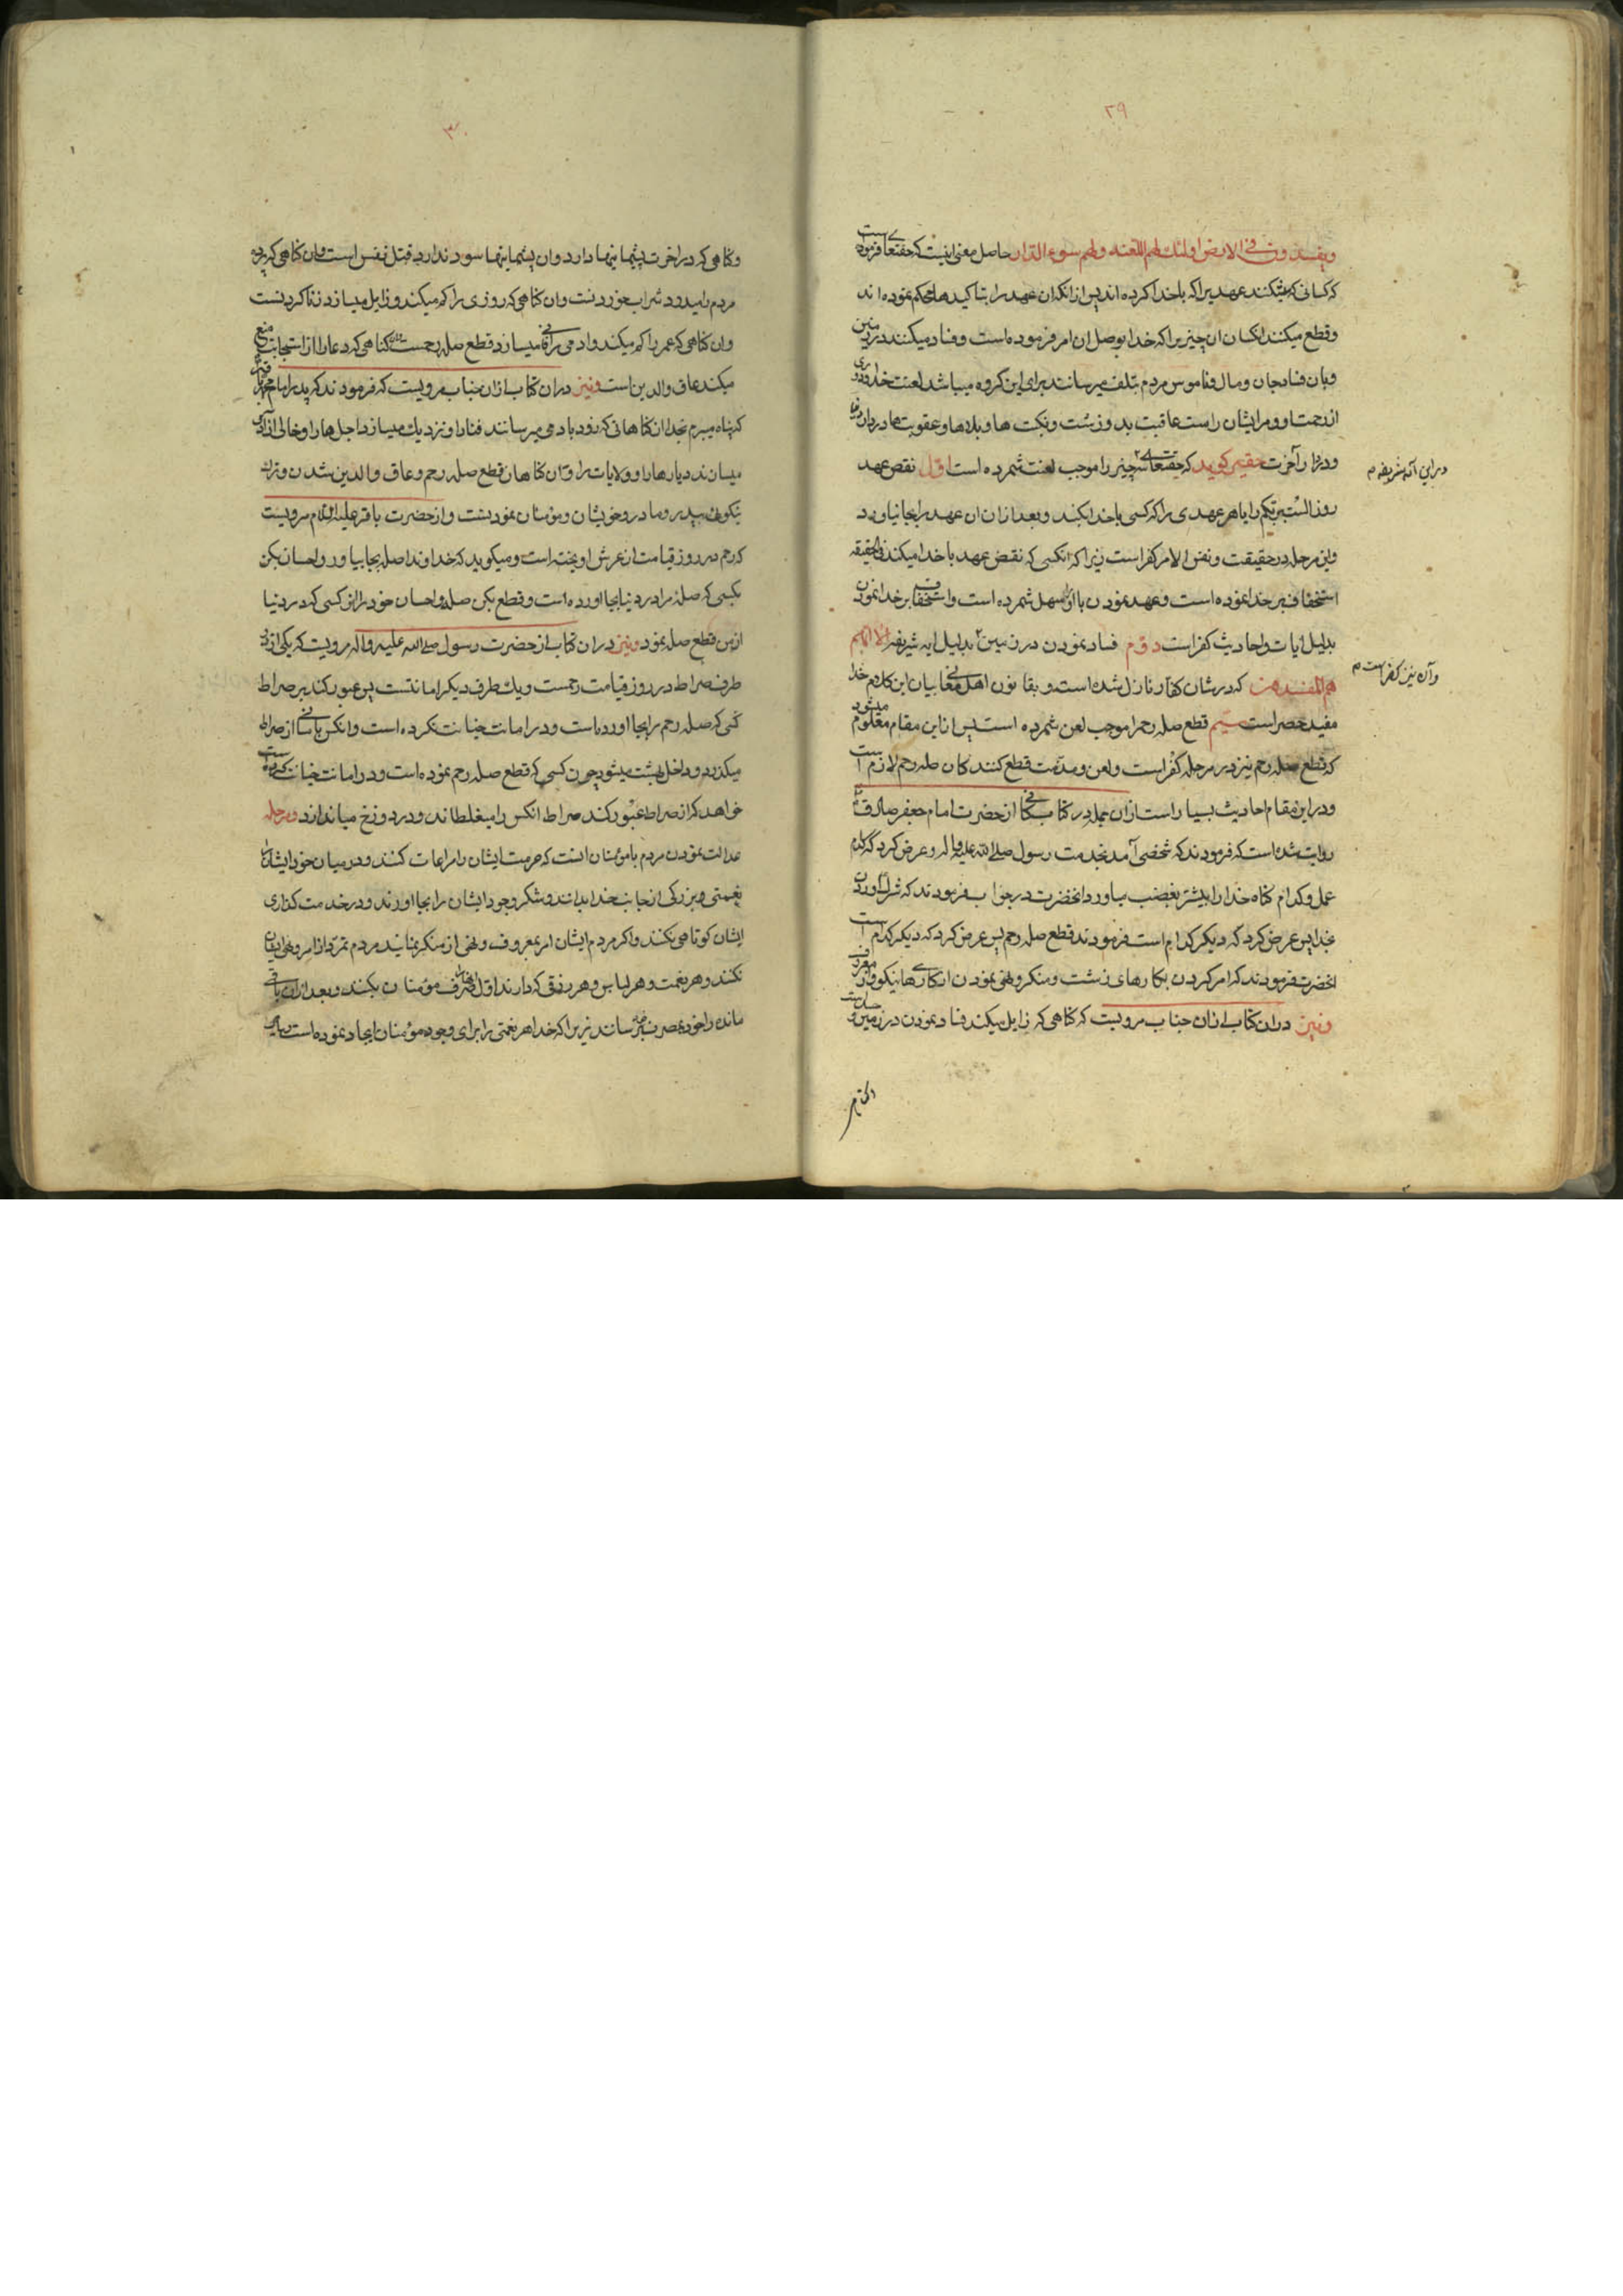 ۲۹
ویفسدون فی الارض اولئک لهم اللعنه ولهم سوء الدار حاصل معنی اینست که حقتعالی فرموده است
که کسانی که میشکنند عهدیرا که با خدا کرده اند پس از انکه ان عهد را بتاکیدها محکم نموده اند
وقطع میکنند انکسان ان چیزیرا که خدا بوصل ان امر فرموده است وفساد میکنند در زمین
وبان فساد جان ومال وناموس مردم بتلف میرسانند برای این گروه میباشد لعنت خدا ودوری
از رحمت او ومر ایشان راست عاقبت بد وزشت ونکبت ها وبلاها وعقوبت ها در دار دنیا
ودر دار آخرت حقیر کوید که حقتعالی سه چیز را موجب لعنت شمرده است اول نقض عهد
در این آیه شریفه م
روز الست بربکم را یا هر عهدی را که کسی با خدا بکند وبعد از ان ان عهد را بجا نیاورد
واین مرحله در حقیقت ونفس الامر کفر است زیرا که انکسی که نقض عهد با خدا میکند فی الحقیقه
استخفاف بر خدا نموده است وعهد نمودن با او را سهل شمرده است واستخفاف بر خدا نمودن
بدلیل ایات واحادیث کفر است دوم فساد نمودن در زمین بدلیل ایه شریفه الا انهم
وآن نیز کفر است م
هم المفسدون که در شان کفار نازل شده است وبقانون اهل معانی بیان این کلام خدا
مفید حصر است سیم قطع صله رحم را موجب لعن شمرده است پس از این مقام معلوم میشود
که قطع صله رحم نیز در مرحله کفر است ولعن ومذمت قطع کنندکان صله رحم لازم است
ودر این مقام احادیث بسیار است از ان جمله در کتاب کافی از حضرت امام جعفر صادق
روایت شده است که فرمودند که شخصی آمد بخدمت رسول صلی الله علیه واله وعرض کرد که کدام
عمل وکدام کناه خدا را بیشتر بغضب میاورد انحضرت در جواب فرمودند که شرک اوردن
بخدا پس عرض کرد که دیکر کدام است فرمودند قطع صله رحم پس عرض کرد که دیکر کدام است
انحضرت فرمودند که امر کردن بکارهای زشت ومنکر ونهی نمودن از کارهای نیکو ومعروف
ونیز در ان کتاب از ان جناب مرویست که کناهی که زایل میکند فساد نمودن در زمین
۳۰
وکناهی که در اخرت پشیمانیها دارد وان پشیمانیها سود ندارد قتل نفس است وان کناهی که پرده
مردم را میدرد شراب خوردنست وان کناهی که روزی را کم میکند وزایل میسازد زنا کردنست
وان کناهی که عمر را کم میکند وادمی را فانی میسازد قطع صله رحمست وان کناهی که دعا را از استجابت منع
میکند عاق والدین است ونیز در ان کتاب از ان جناب مرویست که فرمودند که پدرم امام محمد باقر
که پناه میبرم بخدا از ان کناهانی که زود بادمی میرسانند فنا را ونزدیک میسازد اجل ها را وخالی از آدمی
میسازند دیارها را وولایات را وان کناهان قطع صله رحم وعاق والدین شدن وترک
نیکوئی بپدر ومادر وخویشان ومؤمنان نمودنست واز حضرت باقر علیه السلام مرویست
که رحم در روز قیامت از عرش اویخته است ومیکوید که خداوندا صله بجا بیاور واحسان بکن
بکسی که صله مرا در دنیا بجا اورده است وقطع بکن صله واحسان خود را از کسی که در دنیا
از من قطع صله نمود ونیز در ان کتاب از حضرت رسول صلی الله علیه واله مرویست که یکی از دو
طرف صراط در روز قیامت رحمست ویک طرف دیکر امانتست پس عبور کند بر صراط
کسی که صله رحم را بجا اورده است ودر امانت خیانت نکرده است وانکس باسانی از صراط
میکذرد وداخل بهشت میشود چون کسی که قطع صله رحم نموده است ودر امانت خیانت کرده است
خواهد که از صراط عبور کند صراط انکس را میغلطاند ودر دوزخ میاندازد ومرحله
عدالت نمودن مردم با مؤمنان انست که حرمت ایشان را مراعات کنند ودر میان خود ایشان را
نعمتی وبزرکی از جانب خدا بدانند وشکر وجود ایشان را بجا اورند ودر خدمت کذاری
ایشان کوتاهی نکنند واکر مردم را ایشان امر بمعروف ونهی از منکر بنمایند مردم تمرد از امر ونهی ایشان
نکنند وهر نعمت وهر لباس وهر رزقی که دارند اول انرا صرف مؤمنان بکنند وبعد از ان باقی
مانده را خود بمصرف برسانند زیرا که خدا هر نعمتی را برای وجود مؤمنان ایجاد نموده است